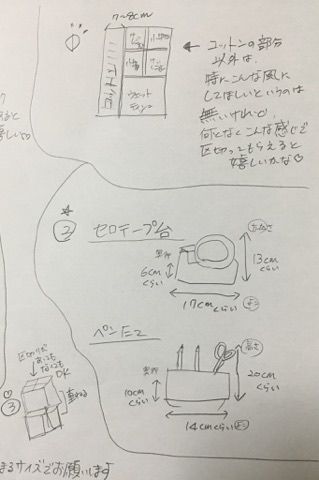 7〜8cm
コットンの部分
以外は、
特にこんな風に
してほしいというのは
無いけれど、
何となくこんな感じで
区切ってもらえると
嬉しいかな♡
ウェット
②
セロテープ台
高さ
奥行
6cm
くらい
13cm
くらい
17cm
くらい
ヨコ
ペンたて
高さ
奥行
10cm
くらい
20cm
くらい
14cmくらい ヨコ
区切りが
あっても
なくても
OK
重ねる
③
まるサイズでお願いします